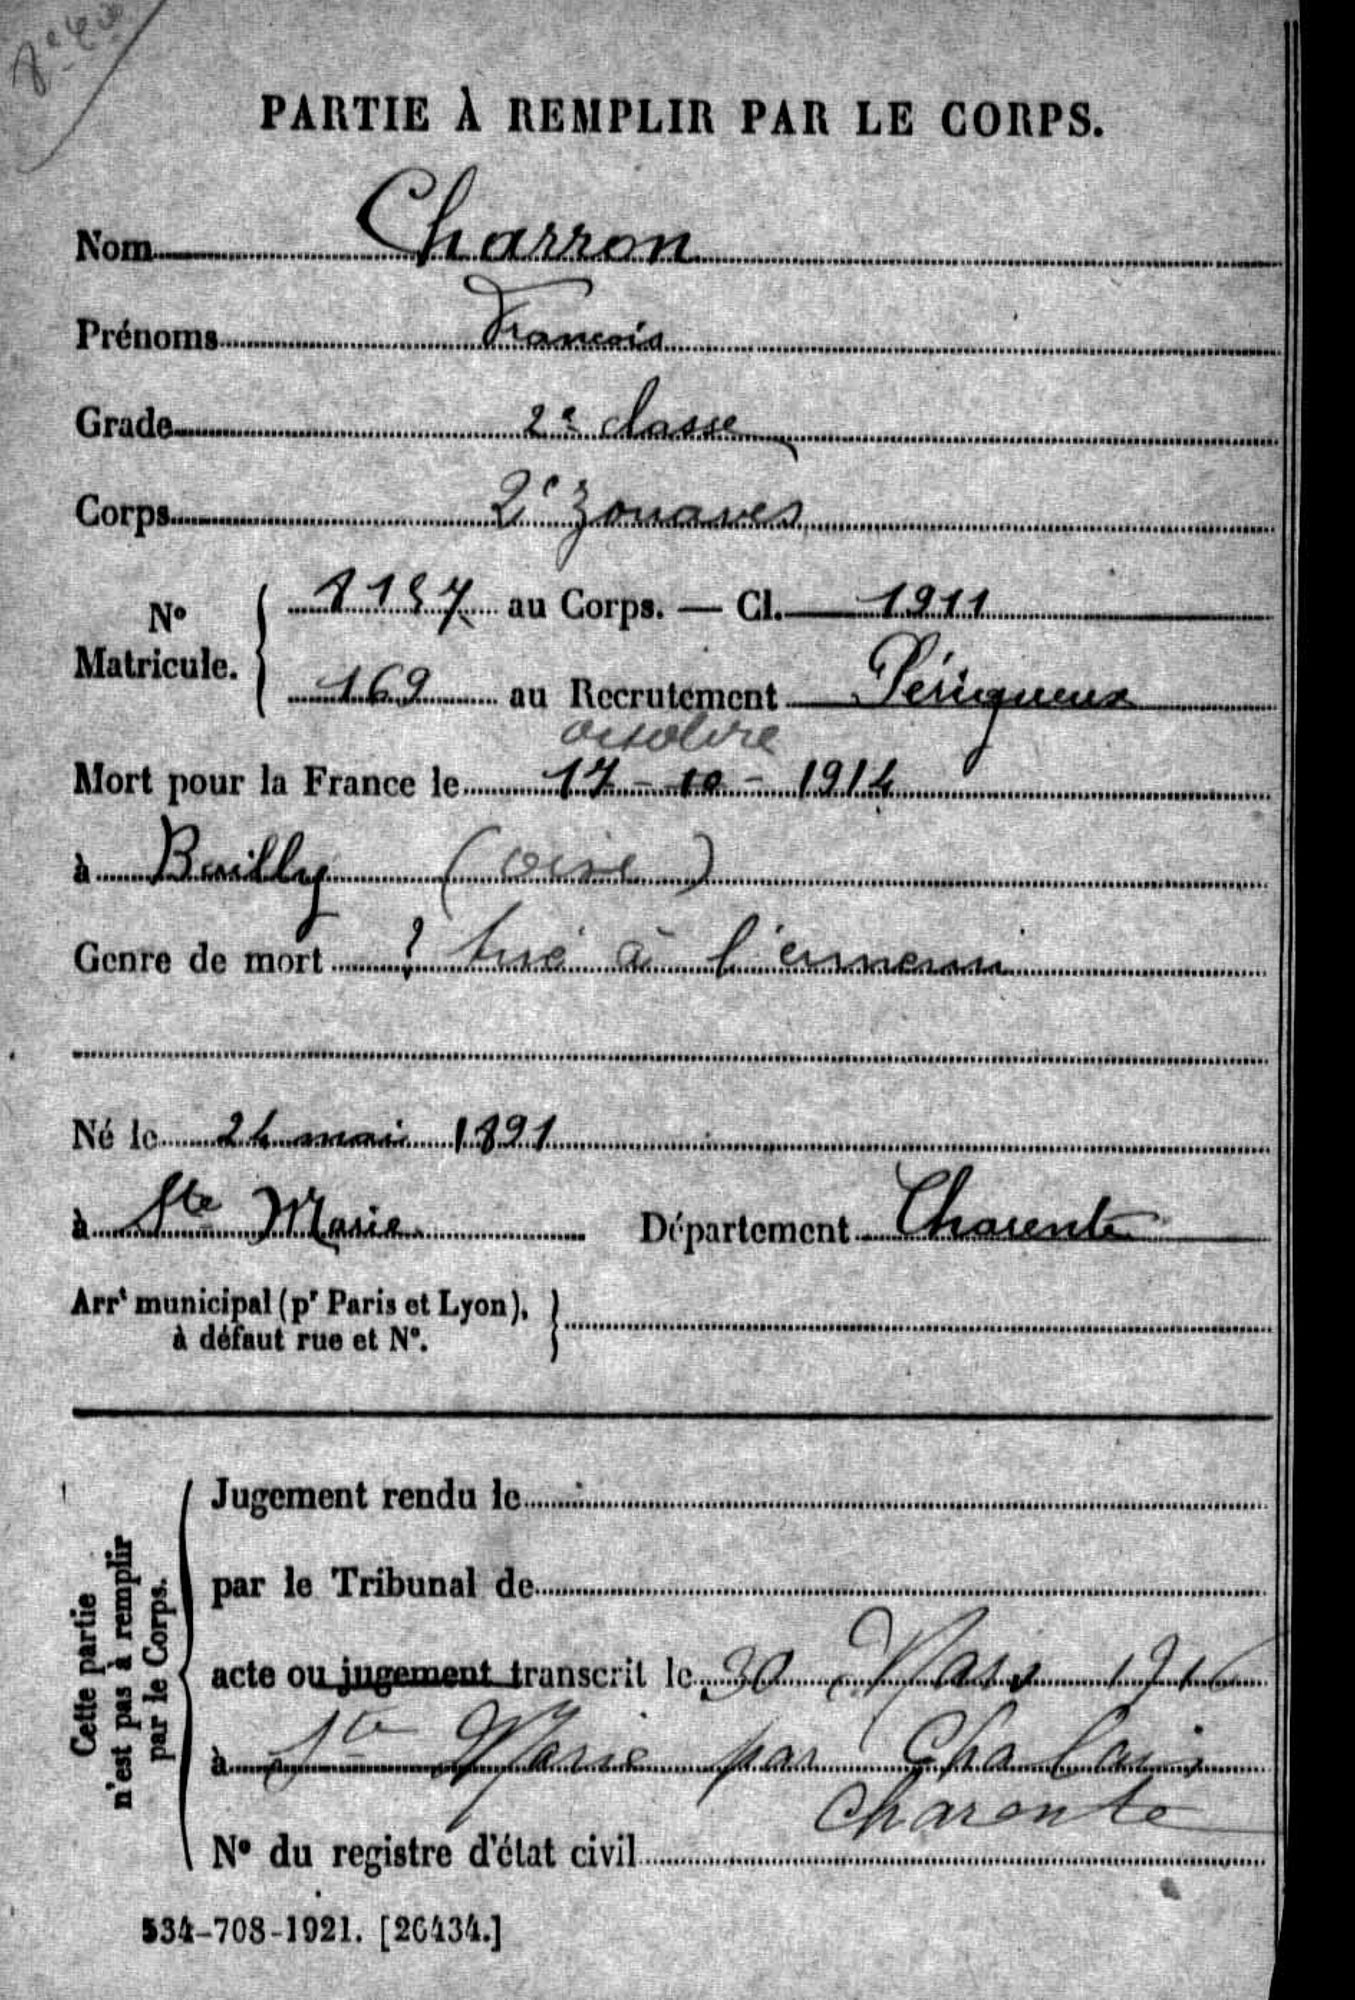 PARTIE À REMPLIR PAR LE CORPS.
Nom Charron
Prénoms François
Grade 2e classe
Corps 2e zouaves
No Matricule. { au Corps. — Cl. 1911
169 au Recrutement Périgueux
octobre
Mort pour la France le 17-10-1914
à Bailly (oise)
Genre de mort ? tué à l'ennemi
Né le 24 mai 1891
à Ste Marie Département Charente
Arrt municipal (pr Paris et Lyon),
à défaut rue et No. }
Cette partie
n'est pas à remplir
par le Corps.
Jugement rendu le
par le Tribunal de
acte ou jugement transcrit le 30 Mars 1916
à Ste Marie par Chalais
Charente
No du registre d'état civil
534-708-1921. [26434.]